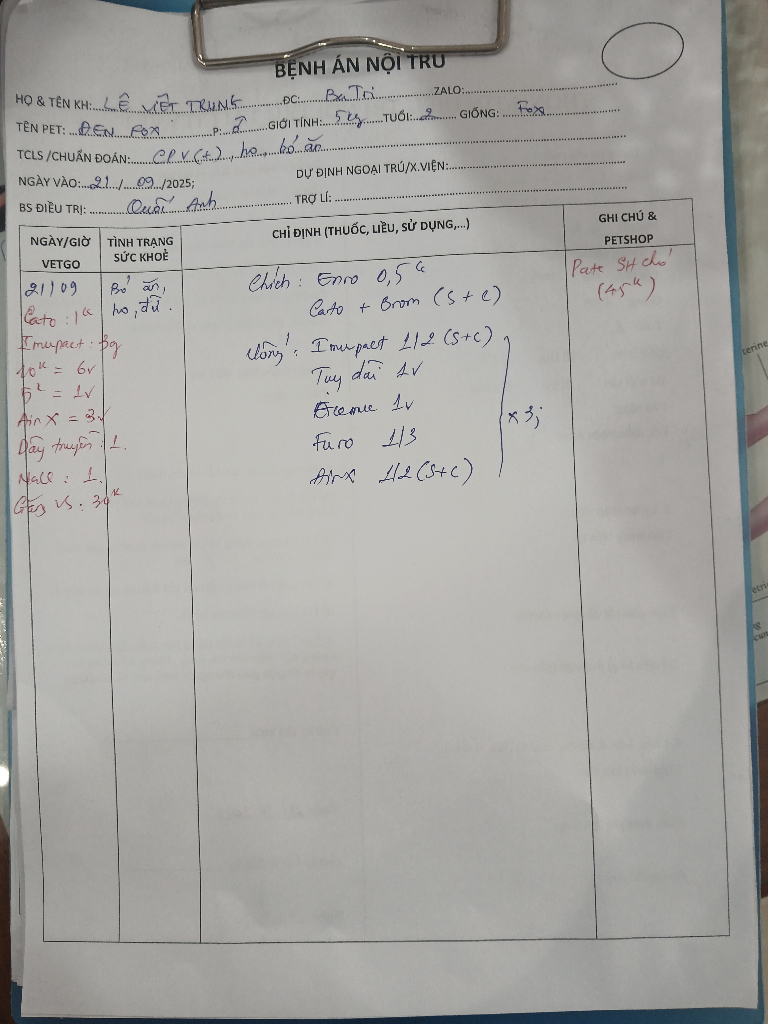 BỆNH ÁN NỘI TRÚ
HỌ & TÊN KH: LÊ VIẾT TRUNG ĐC: Ba Tri ZALO:
TÊN PET: ĐEN FOX P: ♂ GIỚI TÍNH: 5kg TUỔI: 2 GIỐNG: Fox
TCLS /CHUẨN ĐOÁN: CPV(+), ho, bỏ ăn
NGÀY VÀO: 21 / 09 /2025; DỰ ĐỊNH NGOẠI TRÚ/X.VIỆN:
BS ĐIỀU TRỊ: Quốc Anh TRỢ LÍ:
NGÀY/GIỜ VETGO
TÌNH TRẠNG SỨC KHOẺ
CHỈ ĐỊNH (THUỐC, LIỀU, SỬ DỤNG,...)
GHI CHÚ & PETSHOP
21/09
Cato : 1
Imupact : 3g
10k = 6v
= 1v
AirX = 3v
Dây truyền : 1.
Nacl : 1.
VS : 30k
Bỏ ăn,
ho, đừ.
Chích : Enro 0,5
Cato + Brom (S + C)
Uống : Imupact 1/2 (S+C)
Tuy dài 1v
1v
Furo 1/3
AirX 1/2 (S+C)
x 3;
Pate SH chó
(45k)